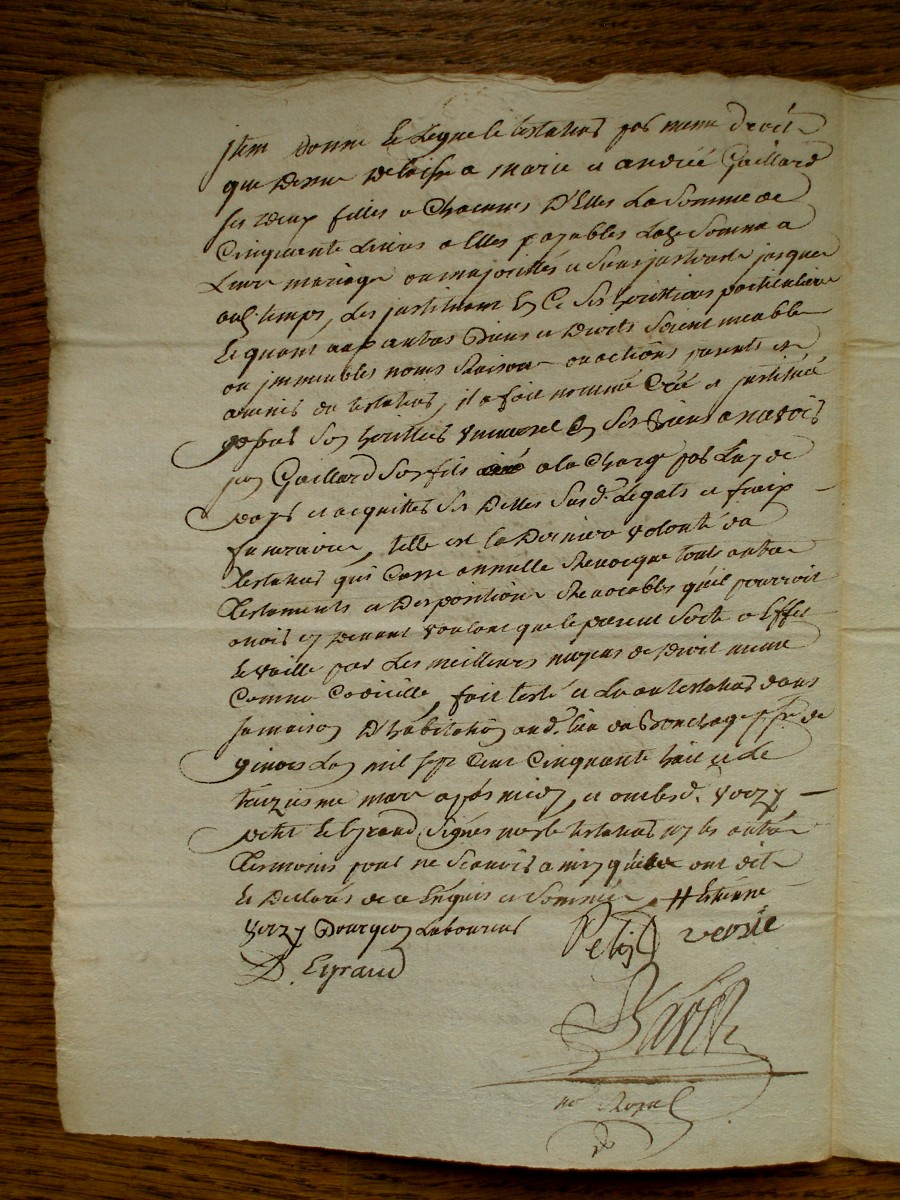 jtem donne Et Legue le testateur par meme droit
que dessus delaisse a marie et andreé Gaillard
ses deux filles a chacunes d'Elles La Somme de
Cinquante Livres a Elles payables Lad.e Somme a
Leurs mariage ou majorittés et Sans jnterest jusques
aud. temps, Les jnstituant En Ce Ses herittieres particulieres
Et quant aux autres Biens et Droits Soient meubles
ou jmmeubles noms Raisons ou actions presents et
avenir du testateur, il a fait nommé Créé et jnstitué
Son herittier universel En Ses Biens a Scavoir
Gaillard Son fils a la Charge par Luy de
payer et acquitter Ses Dettes Susd. Legats et fraix
funeraires, telle est la Derniere volonté du
testateur qui Casse annulle Revocque touts autres
testaments et Dispositions Revocables qu'il pourroit
avoir cy devant voulant que le present Sorte a Effet
Et vaille par Les meilleurs moyens de Droit meme
Comme Codicille, fait testé et Lu au testateur dans
Sa maison D'habitation aud. lieu du
L'an mil Sept Cent Cinquante huit et le
treizieme mars apres midy, et ont lesd. verzy
petit Et Eyraud Signés non le testateur ny les autres
tesmoins pour ne Scavoir ainsy qu'ils ont dit
Et Declarés de ce Enquis et Sommés # Etienne
verzy Laboureur
Petit versie
D. Eyraud

no Royal